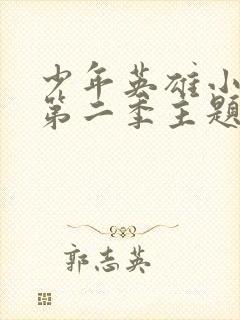 少年英雄小
第二季主题
郭志英